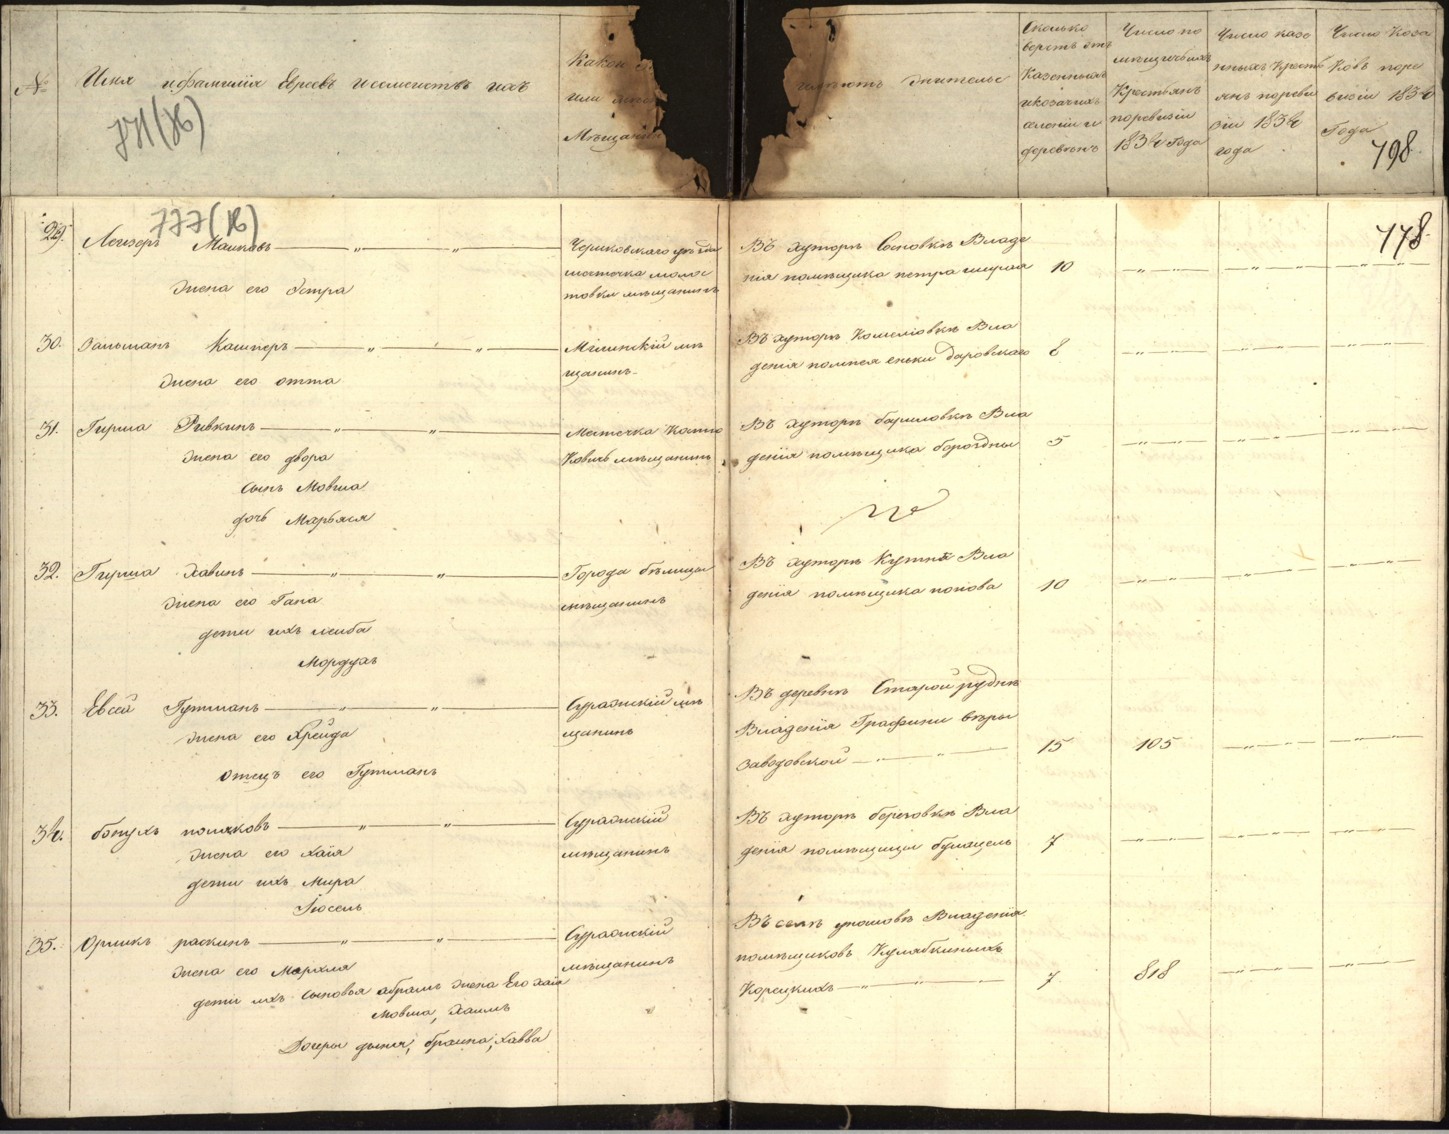 №
Имя и фамилія Евреевъ и семействъ ихъ
771(об)
Какой
или
Мѣщанинъ
имѣютъ жительс
Сколько
верстъ отъ
Казенныхъ
и козачихъ
селеній и
деревень
Число по
мѣщичьихъ
Крестьянъ
по ревизіи
1834 Года
Число казе
нныхъ крестъ
янъ по реви
зіи 1834
года
Число Коза
ковъ по ре
визіи 1834
Года
798
777(об)
778
29. Лейзеръ Машковъ
жена его Эстра
Чериковскаго уѣзда
местечка молос
товки мѣщанинъ
Въ хуторѣ Сосновкѣ Владе
нія помѣщика петра ширая 10
30. Зальманъ Кашперъ
жена его отта
Мглинскій мѣ
щанинъ
Въ хуторѣ Кошелювкѣ Вла
денія 8
31. Гирша Ривкинъ
жена его двора
сынъ Мовша
дочь Марьяся
Местечка Костю
ковичъ мѣщанинъ
Въ хуторѣ Вла
денія помѣщика бороздны 5
32. Гирша Хавинъ
жена его Гана
дети ихъ лейба
Мордухъ
Города бѣлицы
мѣщанинъ
Въ хуторѣ Кутнѣ Вла
денія помѣщика попова 10
33. Евсей Гутманъ
жена его Фрейда
отецъ его Гутманъ
Суражскій мѣ
щанинъ
Въ деревнѣ Старой руднѣ
Владенія Графини вѣры
Заводовской 15 105
34. бонухъ поляковъ
жена его хаія
дети ихъ Мира
Іосель
Суражскій
мѣщанинъ
Въ хуторѣ береговкѣ Вла
денія помѣщицы 7
35. Оршикъ раскинъ
жена его Мархля
дети ихъ сыновья абрамъ жена Его хаія
Мовша, Хаимъ
Дочери дыня, браина, хавва
Суражскій
мѣщанинъ
Въ селѣ Владенія
помѣщиковъ Кулябкиныхъ
Корецкихъ 7 818